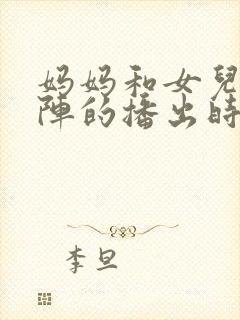 妈妈和女兒
陣的播出時
李旦